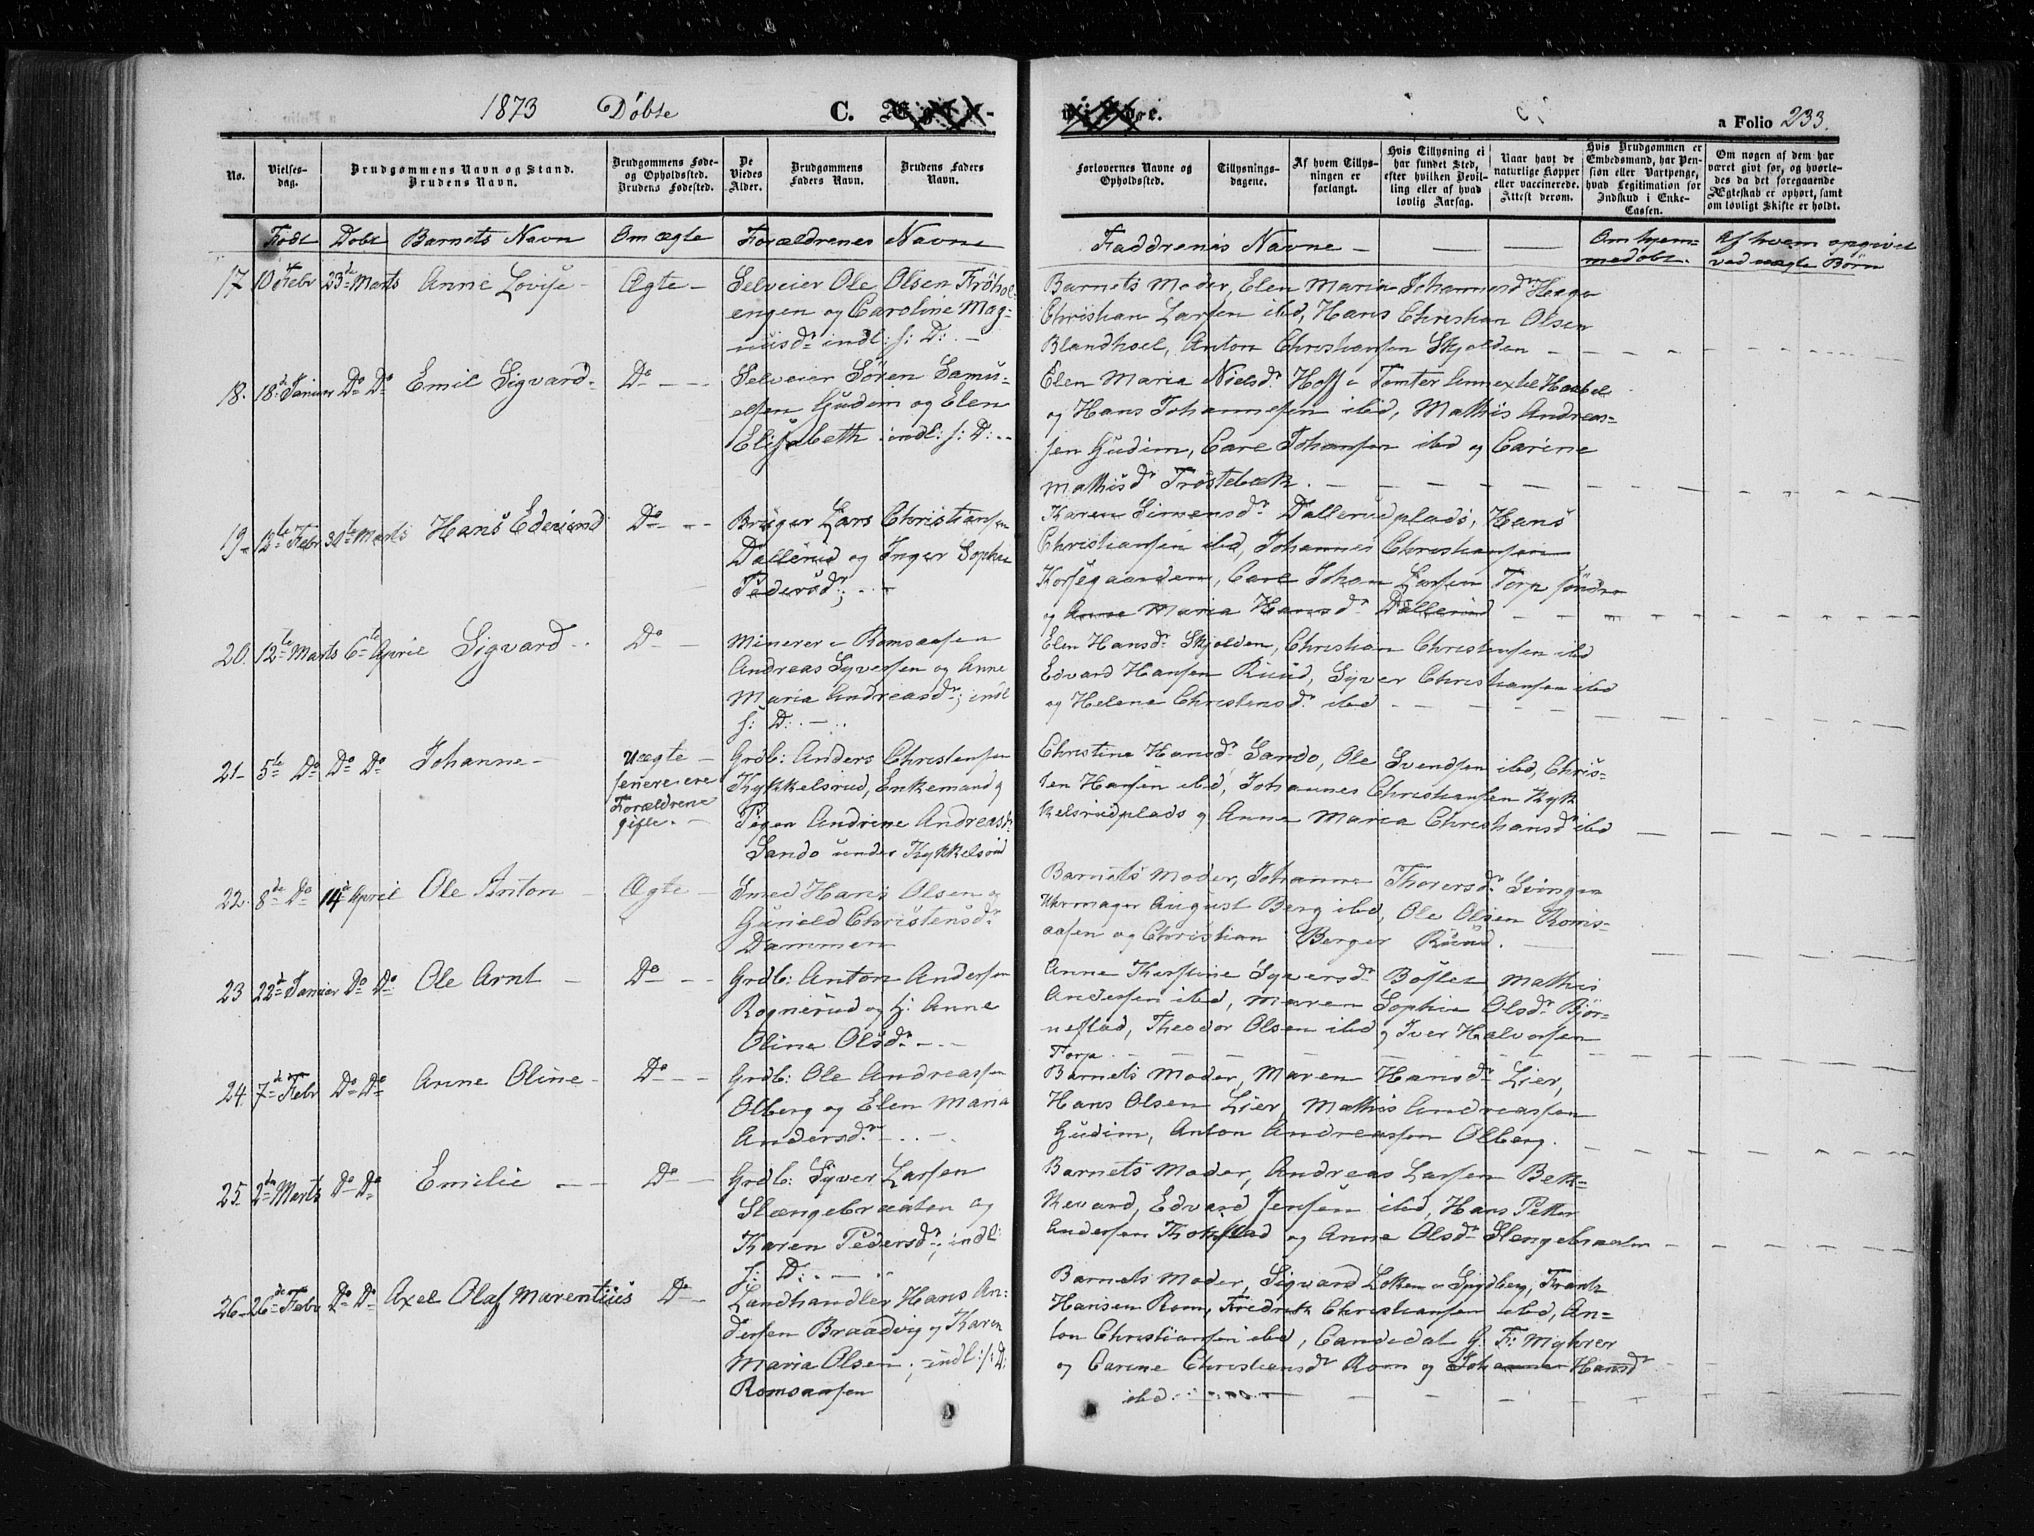 1873 Döbte C. Ægte-
viede. a Folio 233.
No. Vielses-dag. Brudgommens Navn og Stand. Brudens Navn. Brudgommens Føde- og Opholdsted. Brudens Fødested. De Viedes Alder. Brudgommens Faders Navn. Brudens Faders Navn.
Forlovernes Navne og Opholdsted. Tillysnings-dagene. Af hvem Tillys-ningen er forlangt. Hvis Tillysning ei har fundet Sted, efter hvilken Bevil-ling eller af hvad lovlig Aarsag. Naar havt de naturlige Kopper eller vaccinerede. Attest derom. Hvis Brudgommen er Embedsmand, har Pen-sion eller Vartpenge, hvad Legitimation for Indskud i Enke-Cassen. Om nogen af dem har været gift før, og hvorle-des da det foregaaende Ægteskab er ophørt, samt om lovligt Skifte er holdt.
Födt Döbt Barnets Navn Om ægte Forældrenes Navne
Faddrenes Navne — Om hjem-medöbt. Af hvem opgivet ved uægte Börn
17 10 Febr 23de Marts Anne Lovise Ægte — Selveier Ole Olsen Fröhol-
engen og Caroline Mag-
nusdr indl: f: D: —
Barnets Moder, Elen Maria Johannesdr Haga
Christian Larsen ibd, Hans Christian Olsen
Blandhoel, Anton Christiansen Skjolden
18. 18de Januar Do Do Emil Sigvard. Do — Selveier Sören Samu-
elsen Gudim og Elen
Elisabeth indl: f: D:
Elen Maria Nielsdr Hoff
og Hans Johannesen ibid, Mathis Andreas-
sen Gudim, Carl Johansen ibd og Carine
Mathisdr Tröstebæk.
19 13te Febr 30te Marts Hans Edvard Do — Bruger Lars Christiansen
Dallerud og Inger Sophie
Pedersdr;
Karen Simensdr Dallerudplads, Hans
Christiansen ibd, Johannes Christiansen
Korsegaarden, Carl Johan Larsen Torp söndre
og Anne Maria Hansdr Dallerud
20. 12te Marts 6te April Sigvard Do — Minerer i Romsaasen
Andreas Syversen og Anne
Maria Andreasdr; indl
f: D:
Elen Hansdr Skjolden, Christian Christensen ibd
Edvard Hansen Ruud, Syver Christiansen ibd
og Helene Christensdr ibd
21 5te Do Do Do Johanne — Uægte — Grdb: Anders Christensen
senere ere Kykkelsrud, Enkemand og
Forældrene Pigen Andrine Andreasdr
gifte. — Sando under Kykkelsrud
Christine Hansdr Sando, Ole Svendsen ibd, Chris-
ten Hansen ibd, Johannes Christiansen Kyk
kelsrudplads og Anne Maria Christiansdr ibd
22. 8de Do 14de April Ole Anton — Ægte — Smed Hans Olsen og
Gunild Christensdr
Dammen
Barnets Moder, Johanne Thorersdr
Uhrmager August Berg ibd, Ole Olsen Roms-
aasen og Christian Berger Ruud.
23 22de Januar Do Do Ole Arnt — Do — Grdb: Anton Andersen
Rognerud og H: Anne
Oline Olsdr —
Anne Kirstine Syversdr Bösler, Mathis
Andersen ibd, Maren Sophie Olsdr Björ-
nestad, Theodor Olsen ibd og Iver Halvorsen
Torp.
24. 7de Febr Do Do Anne Oline — Do — Grdb: Ole Andreassen
Olberg og Elen Maria
Andersdr —
Barnets Moder, Maren Hansdr Lier,
Hans Olsen Lier, Mathis Andreassen
Gudim, Anton Andreassen Olberg.
25. 2den Marts Do Do Emilie — Do — Grdb: Syver Larsen
Slængebraaten og
Karen Pedersdr; indl:
f: D:
Barnets Moder, Andreas Larsen Bek-
kevard, Edvard Jensen ibd, Hans Petter
Andersen og Anne Olsdr Slengebraaten
26 26de Febr Do Do Axel Olaf Marentius Do — Landhandler Hans An-
dersen Braadvig og Karen
Maria Olsen; indl: f: D:
Romsaasen
Barnets Moder, Sigvard Loken, Frants
Hansen Rom, Fredrik Christiansen ibd, An-
ton Christiansen ibd, Candidat G. F: Myhrer
og Carine Christiansdr Rom og Johanne Hansdr
ibd.